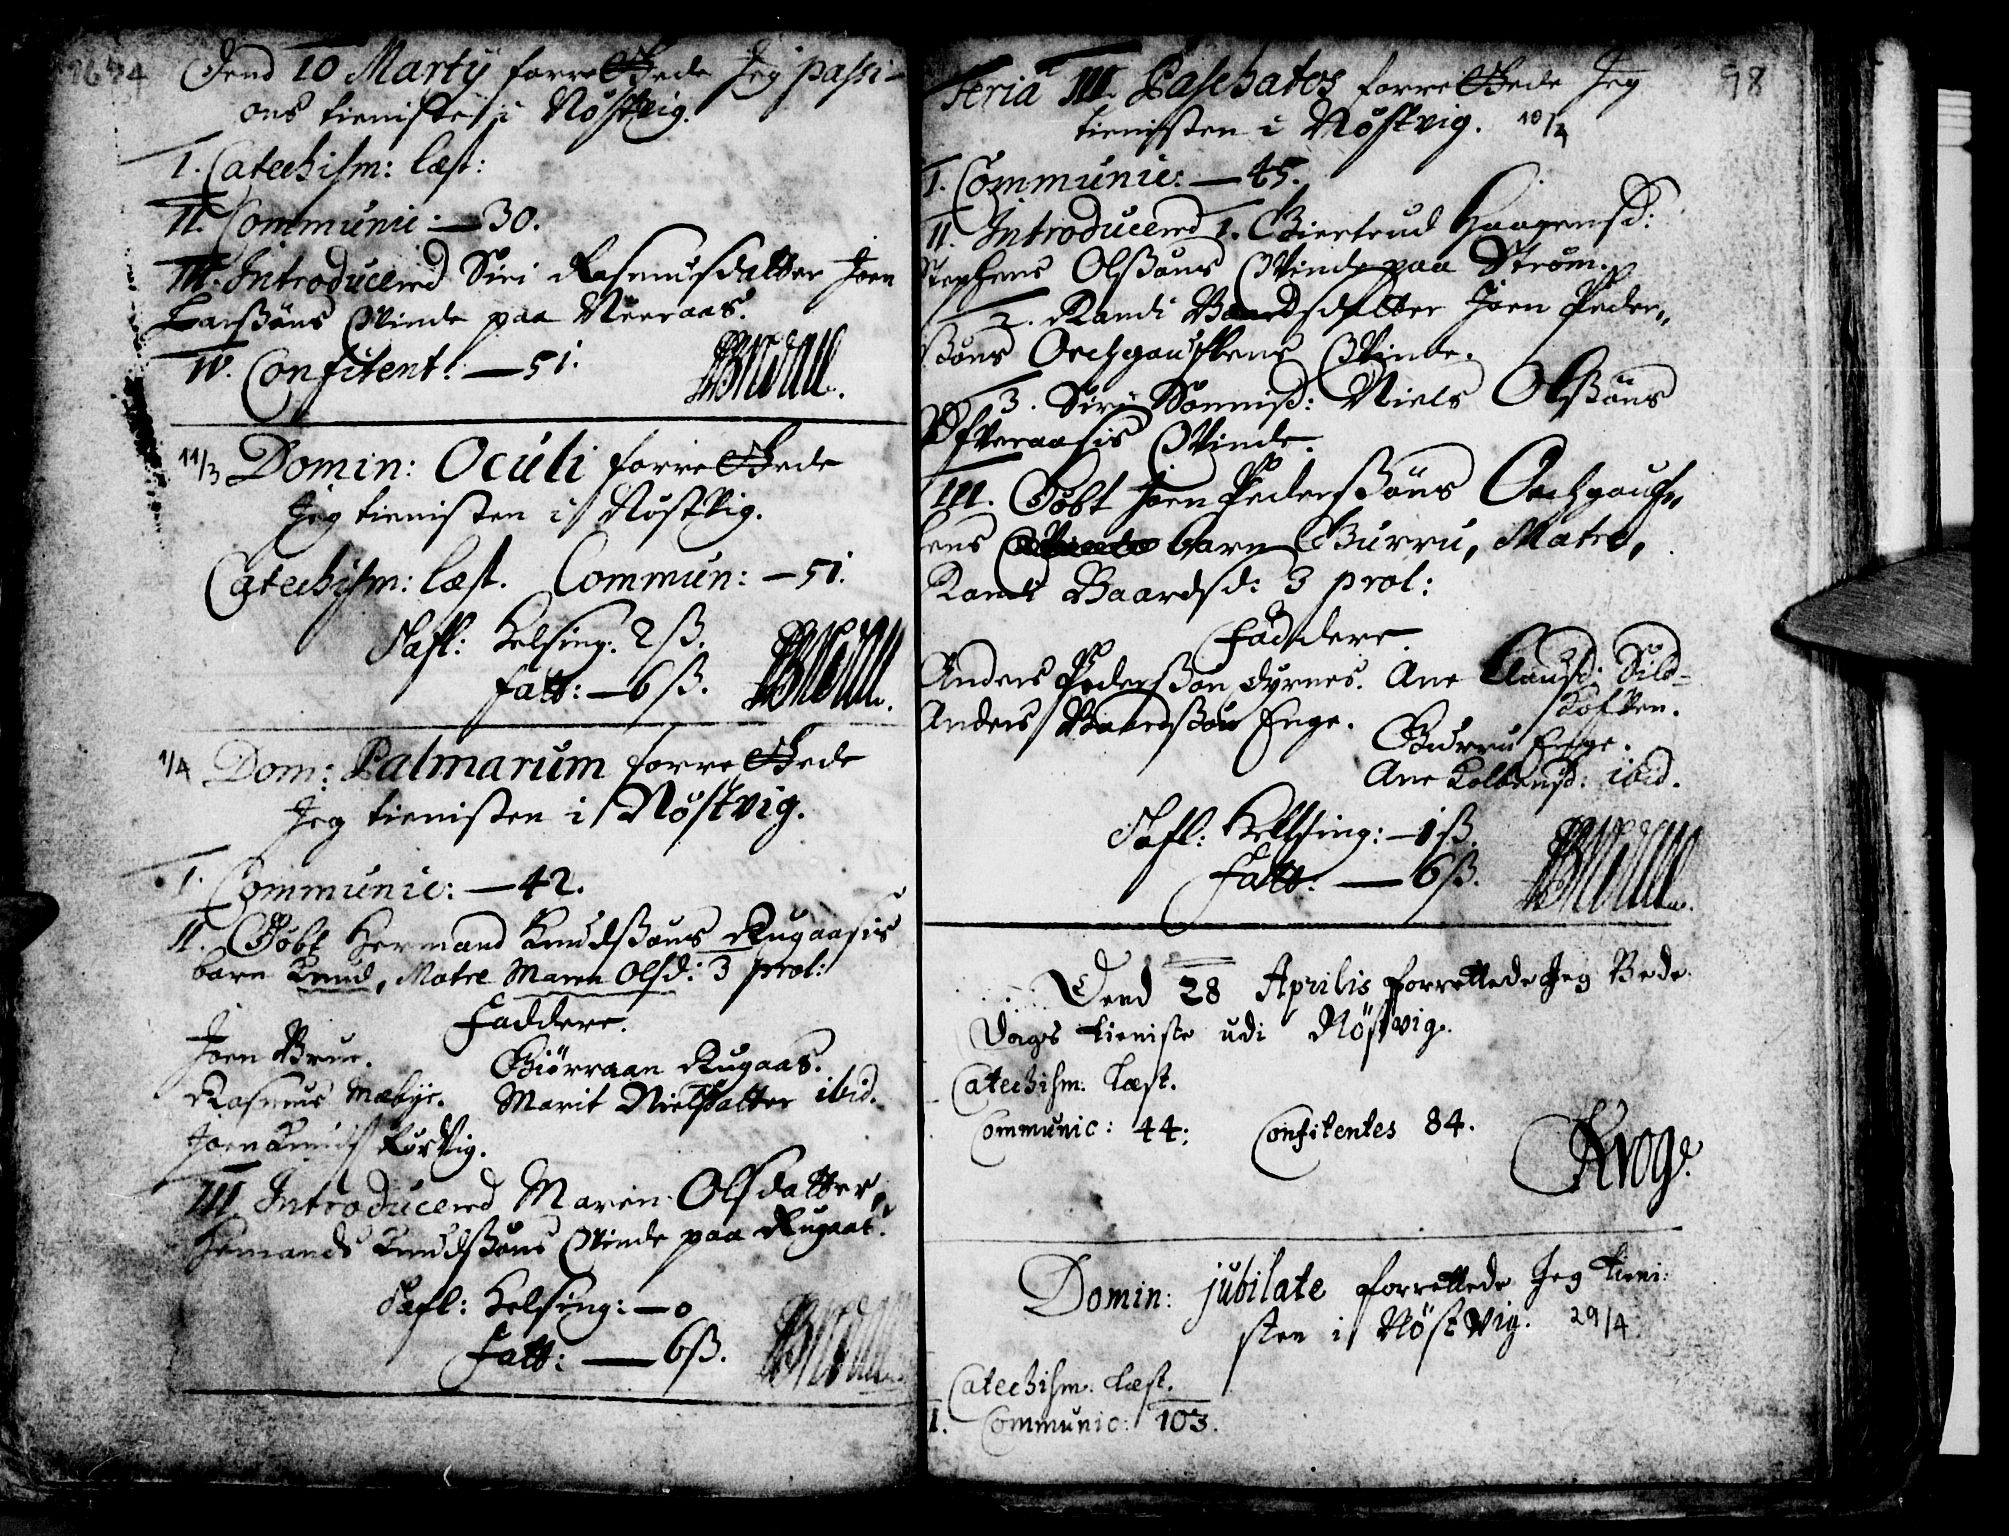 1694
Dend 10 Martÿ forrettede Jeg passi-
ons tieniste i Nøstvig.
I. Catechism: læst:
II. Communic: — 30.
III. Introducered Siri Rasmusdatter Joen
Larssøns Qvinde paa Neeraas.
IV. Confitent: — 51.
11/3 Domin: Oculi forrettede
Jeg tienisten i Nøstvig.
Catechism: læst. Commun: — 51.
Tafl: Helsing: 2 ß.
Fatt: — 6 ß.
1/4 Dom: Palmarum forrettede
Jeg tienisten i Nøstvig.
I. Communic: — 42.
II. Døbt Hermand Knudssøns Rugaasis
barn Knud, Matre Maren Olsd: 3 prol:
Faddere.
Joen Brue. Giörraan Rugaas.
Rasmus Mæbye. Marit Nielsdatter ibid.
Joen Knuds Kørvig.
III Introducered Maren Olsdatter,
Hermands Knudssøns Qvinde paa Rugaas.
Tafl: Helsing: — 0
Fatt: — 6 ß.
98
Feria III. Paschatos forrettede Jeg
tienisten i Nøstvig. 10/4
I. Communic: — 45.
II. Introducered 1. Giertrud Haagensd:
Stephens Olssøns Qvinde paa Strøm.
2. Randi Baardsdatter Joen Peder-
ssøns Oechgaufkens Qvinde.
3. Siri Tønnisd: Niels Olssøns
Ofveraasis Qvinde.
III. Døbt Joen Pederssøns Oechgauf-
kens barn Gurru, Matre,
Randi Baardsd: 3 prol:
Faddere.
Anders Pederssøn Dyrnes. Ane Clausd: Sild-
Anders Baardssøn Enge. kofken.
Gurru Enge.
Ane Kolbensd: ibid.
Tafl: Helsing: — 1 ß.
Fatt: — 6 ß.
Dend 28 Aprilis forrettede Jeg Bede
Dags tieniste udi Nøstvig.
Catechism: Læst.
Communic: 44; Confitentes 84.
Krog.
Domin: jubilate forrettede Jeg tieni:
sten i Nøstvig. 29/4
Catechism: Læst.
I. Communic: 103.